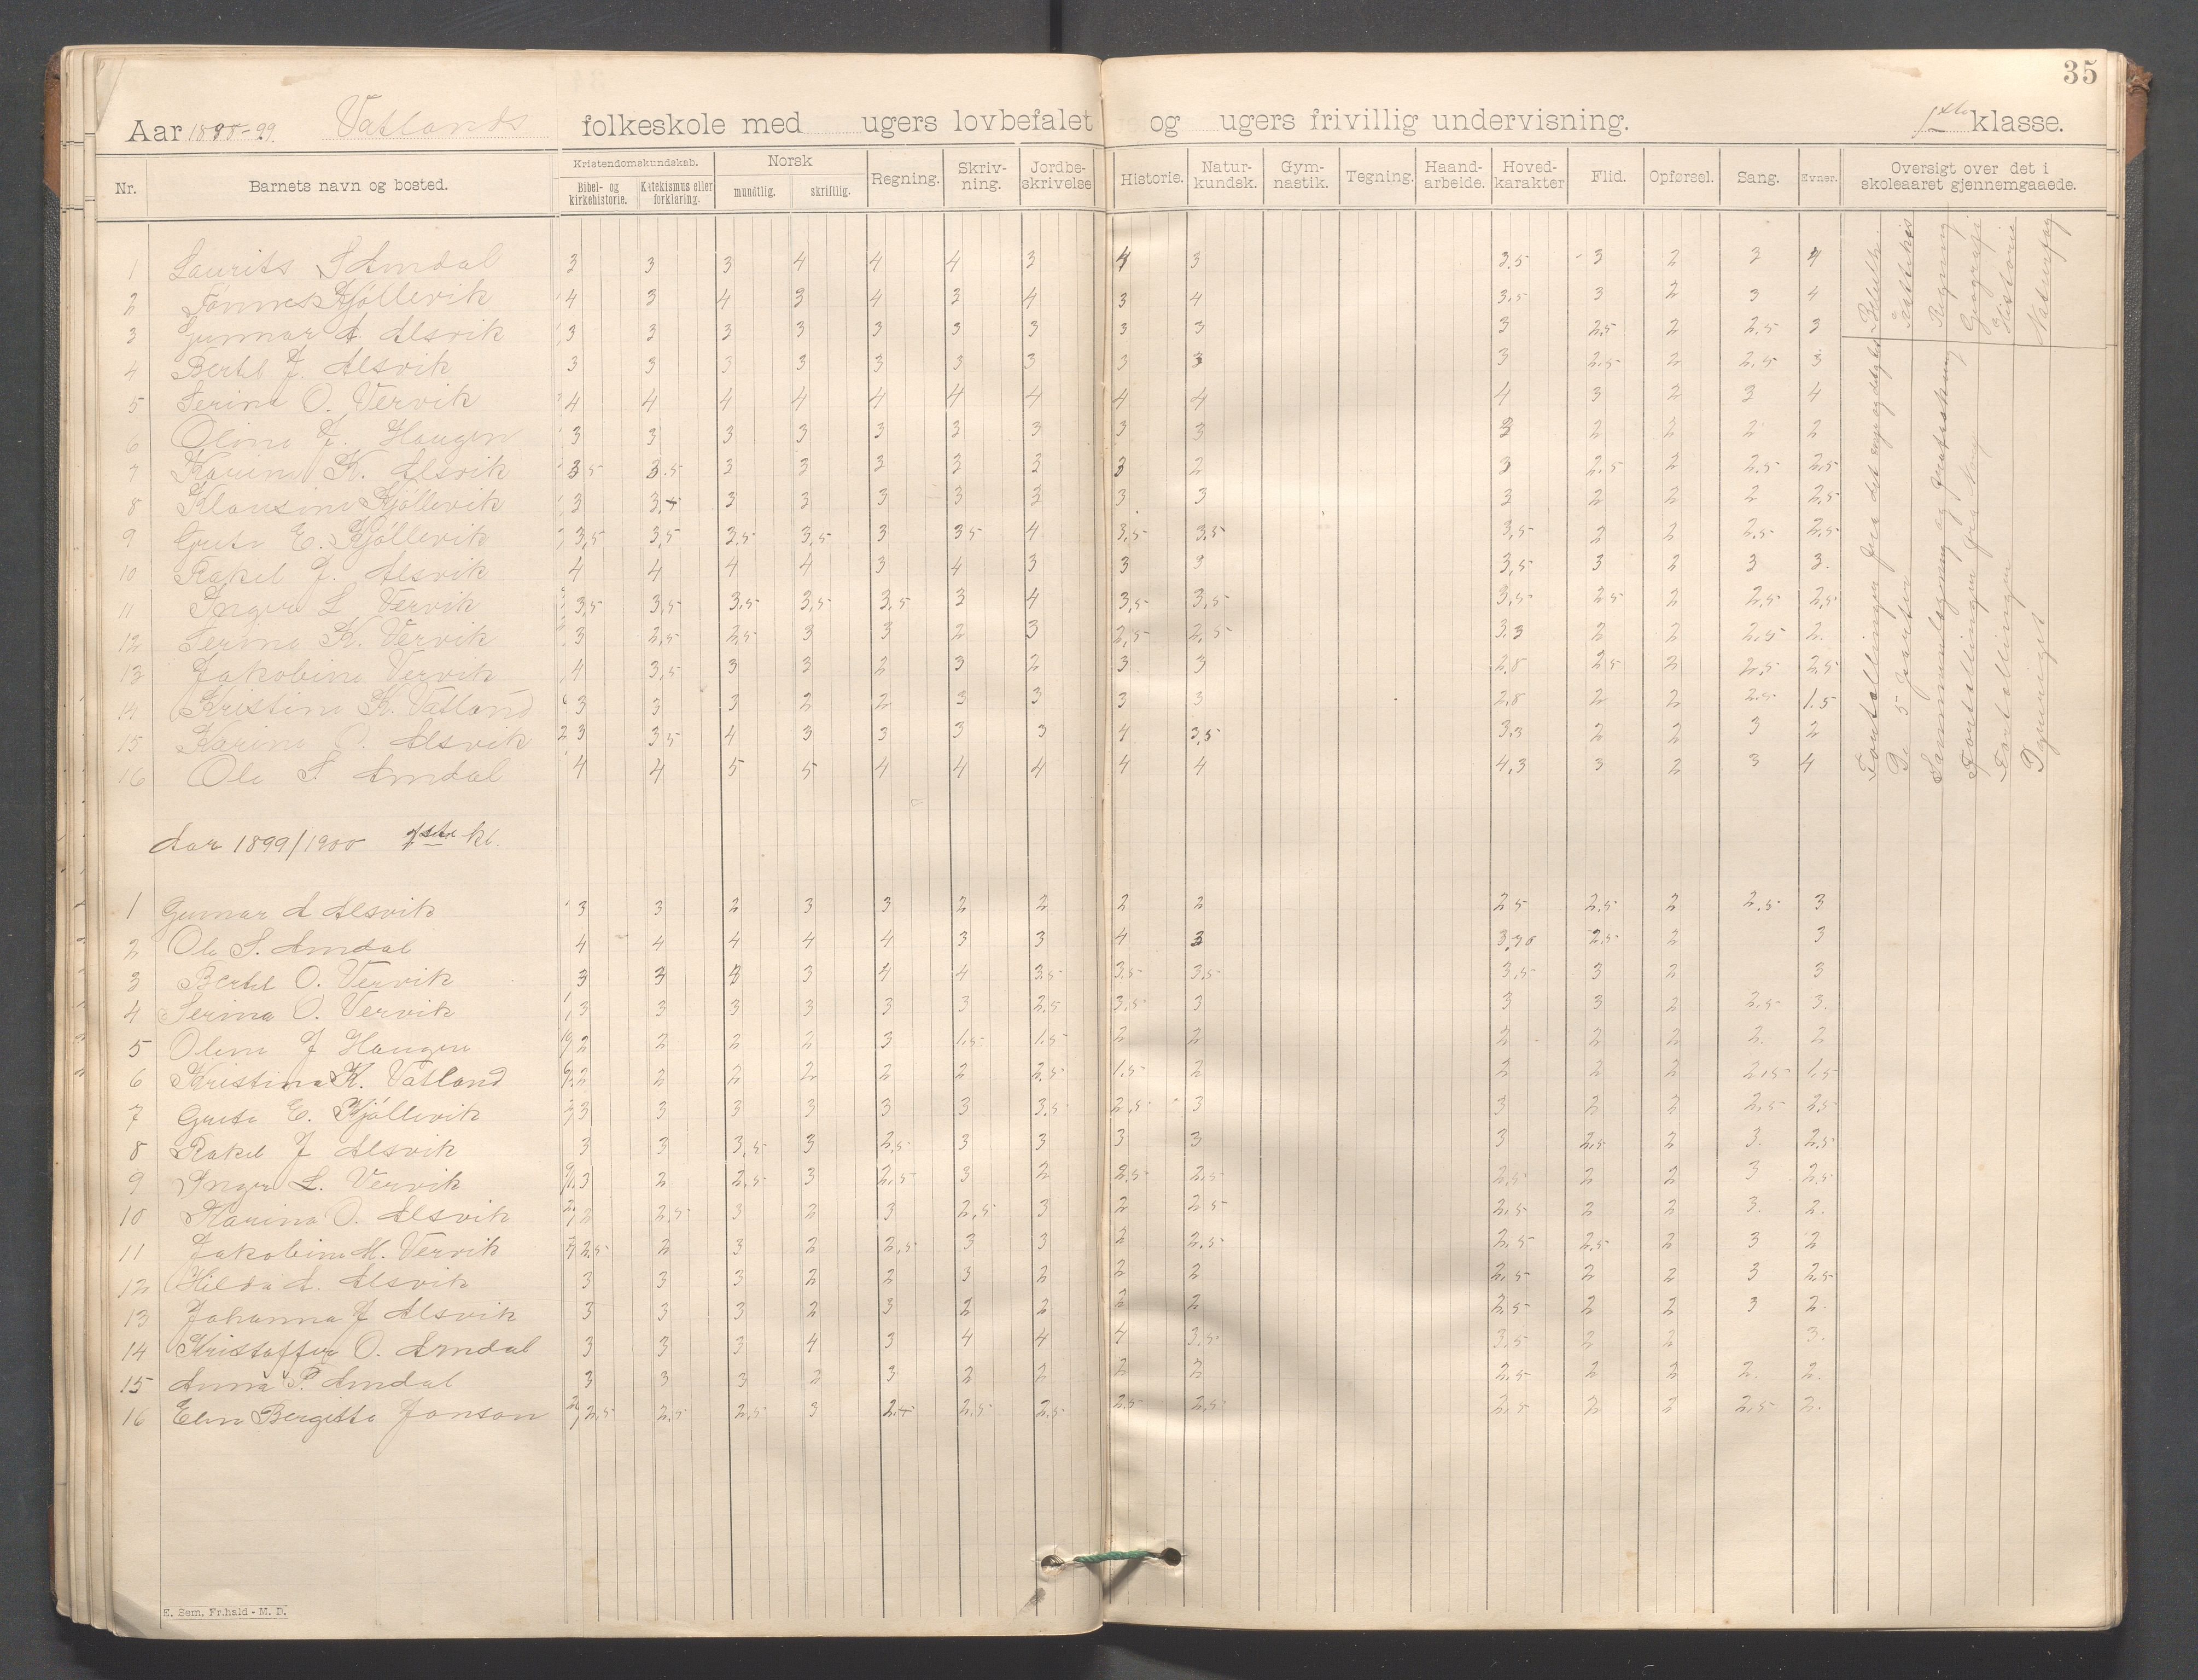 35
Aar 1898-99. Vatlands folkeskole med ugers lovbefalet og ugers frivillig undervisning. 1ste klasse.
Nr. Barnets navn og bosted. Kristendomskundskab. Bibel- og kirkehistorie. Katekismus eller forklaring. Norsk mundtlig. skriftlig. Regning. Skriv-ning. Jordbe-skrivelse Historie. Natur-kundsk. Gym-nastik. Tegning. Haand-arbeide. Hoved-karakter Flid. Opførsel. Sang. Evner. Oversigt over det i skoleaaret gjennemgaaede.
1 Laurits S Amdal 3 3 3 4 4 4 3 4 3 3.5 3 2 3 4
2 Tønnes Kjøllevik 4 3 4 3 4 3 4 3 4 3,5 3 2 3 4
3 Gunnar A. Alsvik 3 3 3 3 3 3 3 3 3 3 2,5 2 2.5 3
4 Bertel J. Alsvik 3 3 3 3 3 3 3 3 3 3 2,5 2 2,5 3
5 Serina O. Vervik 4 4 4 4 4 4 4 4 4 4 3 2 3 4
6 Oline J. Haugen 3 3 3 3 3 3 3 3 3 3 2 2 2 2
7 Karine K. Alsvik 3,5 3.5 3 3 3 3 3 3 2 3 2.5 2 2,5 2,5
8 Klausine Kjøllevik 3 3 3 3 3 3 3 3 3 2 2 2 2,5
9 Grete E. Kjøllevik 3,5 3,5 3,5 3,5 3 3,5 4 3,5 3,5 3,5 2 2 2,5 2,5
10 Rakel J. Alsvik 4 4 4 4 3 4 3 3 3 3,5 3 2 3 3.
11 Inger L Vervik 3,5 3,5 3,5 3,5 3,5 3 4 3,5 3,5 3,5 2,5 2 2,5 2,5
12 Serine K. Vervik 3 2,5 2,5 3 3 2 3 2,5 2,5 3.3 2 2 2,5 2.
13 Jakobine Vervik 4 3,5 3 3 2 3 2 3 3 2,8 2,5 2 2,5 2,5
14 Kristine K. Vatland 3 3 3 2 2 3 3 3 3 2,8 2 2 2,5 1.5
15 Karine O. Alsvik 3 3,5 4 3 3 3 3 4 3,5 3,3 2 2 3 2
16 Ole S. Amdal 4 4 5 5 4 4 4 4 4 4,3 3 2 3 4
Aar 1899/1900 1ste kl.
1 Gunnar A Alsvik 3 3 2 3 3 2 2 2 2 2,5 2,5 2 2,5 3
2 Ole S. Amdal 4 4 4 4 4 3 3 4 3 2,5 2 3
3 Bertel O. Vervik 3 3 3 3 4 4 3,5 3,5 3,5 3,5 3 2 3
4 Serina O. Vervik 3 3 3 3 3 3 2,5 3,5 3 3 3 2 2,5 3.
5 Oline J Haugen 2 2 2 2 3 1,5 1,5 2 2 2 2 2 2. 2
6 Kristina K. Vatland 2 2 2 2 2 2 2,5 1.5 2 2 2 2 2,5 1.5
7 Grete E. Kjøllevik 3 3 3 3 3 3 3.5 2,5 3 3 2 2 2,5 2,5
8 Rakel J Alsvik 3 3 3,5 3 2,5 3 3 3 3 3 2,5 2 3. 2,5
9 Inger L. Vervik 3 2 2,5 3 2,5 3 2 2,5 2,5 2,5 2 2 3 2,5
10 Karina O. Alsvik 2 2,5 3 2 3 2,5 3 2 2,5 2,5 2 2 3. 2.
11 Jakobine M. Vervik 2.5 2 3 2 2,5 3 3 2 2,5 2,5 2,5 2 3 2
12 Hilda A. Alsvik 3 3 3 2 2 3 2 2 2 2,5 2 2 3 2,5
13 Johanna J Alsvik 3 3 3 2 3 2 2 2 2 2,5 2 2 3 2.
14 Kristoffer O. Amdal 3 3 3 4 3 4 4 4 3,5 3,5 2 2 3.
15 Anna P. Amdal 3 3 3 2 3 2 2 2 2 2,5 2 2 2. 2.
16 Elen Bergitte Jonson 2,5 2,5 2,5 3 2,5 2,5 2,5 2,5 2,5 2,5 2 2 2,5 2.
Regning
Geografi
Historie
Naturfag
E. Sem, Fr.hald - M. D.